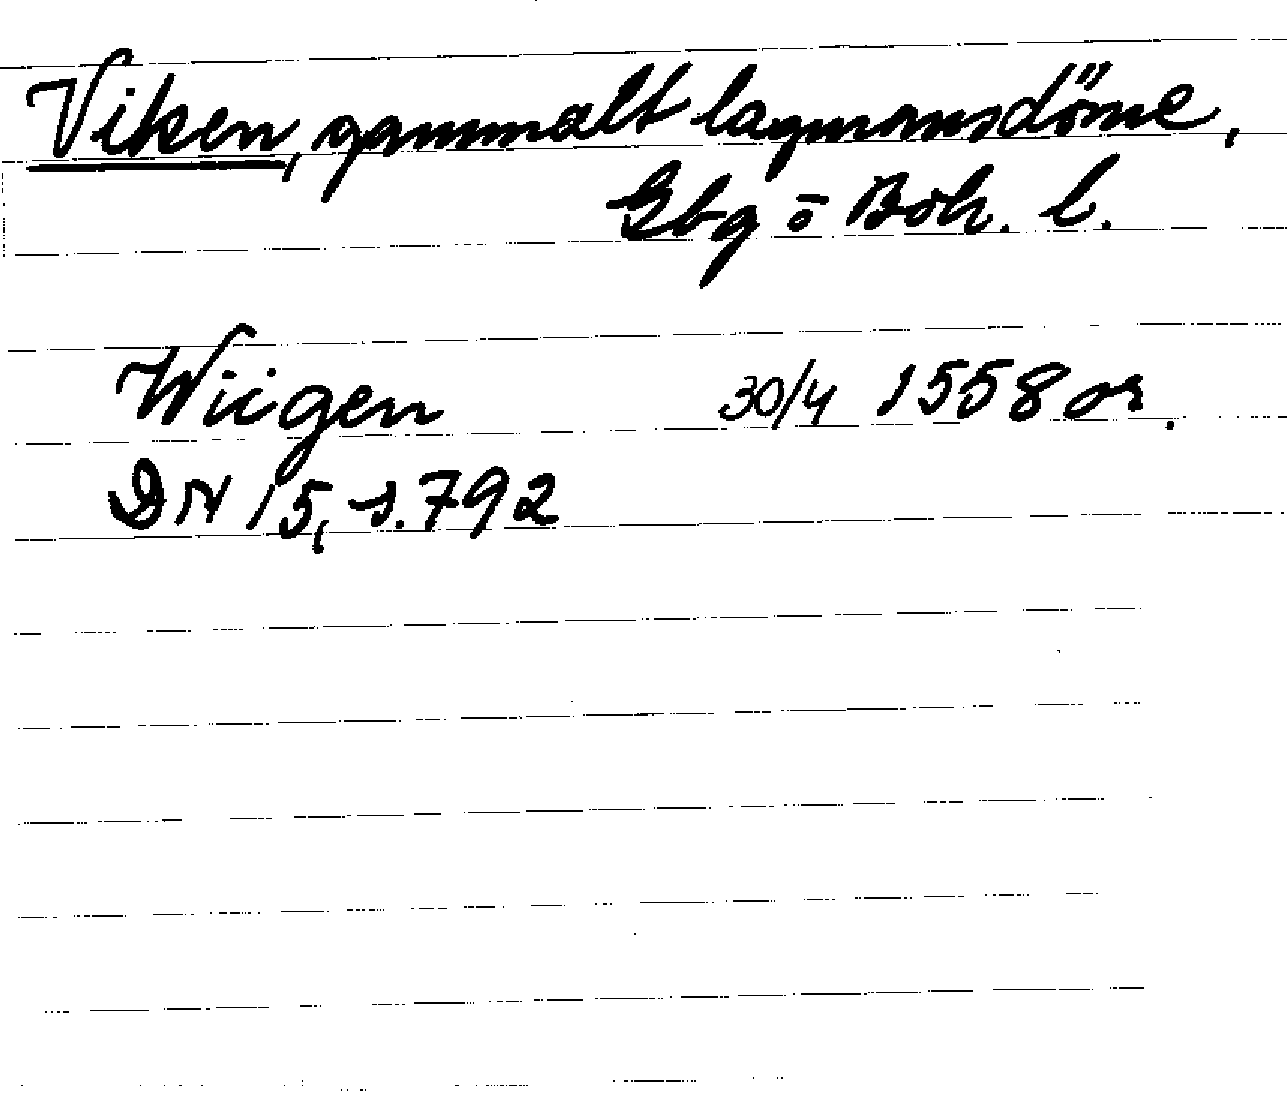 Viken, gammalt lagmansdöme,
Gbg o Boh. l.
Wiigen 30/4 1558 or.
DN 15, s. 792